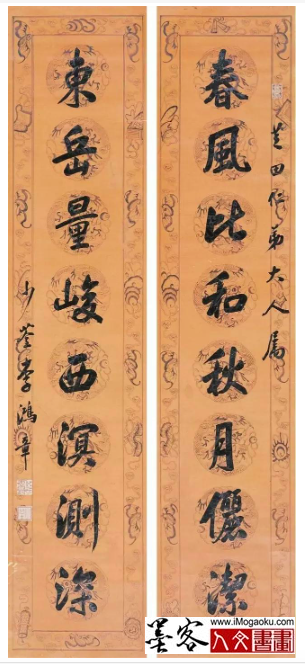 芝田仁弟大人属
春風比和秋月儷潔
東岳量峻西溟測深
少荃李鴻章
www.iMogaoku.com
墨客
人文書畫